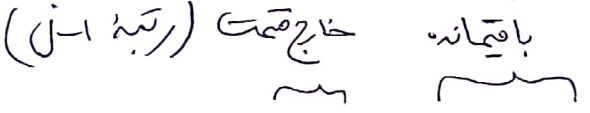 باقیمانده خارج قسمت (رتبهٔ